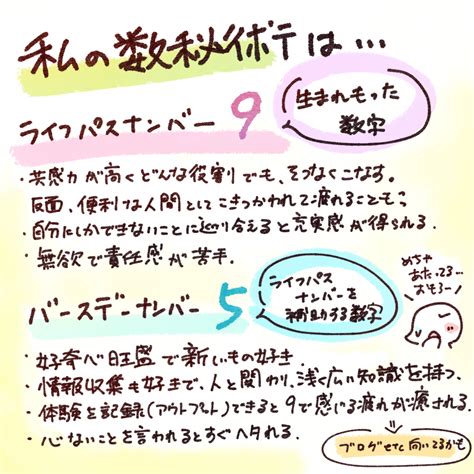 私の数秘イボテは…
ライフパスナンバー 9
生まれもった
数字
・共感力が高くどんな役割でも、そつなくこなす。
反面、便利な人間としてこきつかわれて疲れることも。
・自分にしかできないことに巡り合えると充実感が得られる。
・無欲で責任感が苦手.
バースデーナンバー 5
ライフパス
ナンバーを
補助する数字
めちゃ
あたってる…
おもろー
・好奇心旺盛で新しいもの好き.
・情報収集も好きで、人と関わり、浅く広い知識を持つ.
・体験を記録(アウトプット)できると9で感じる疲れが癒される.
・心ないことを言われるとすぐヘタれる.
ブログetc向いてるかも